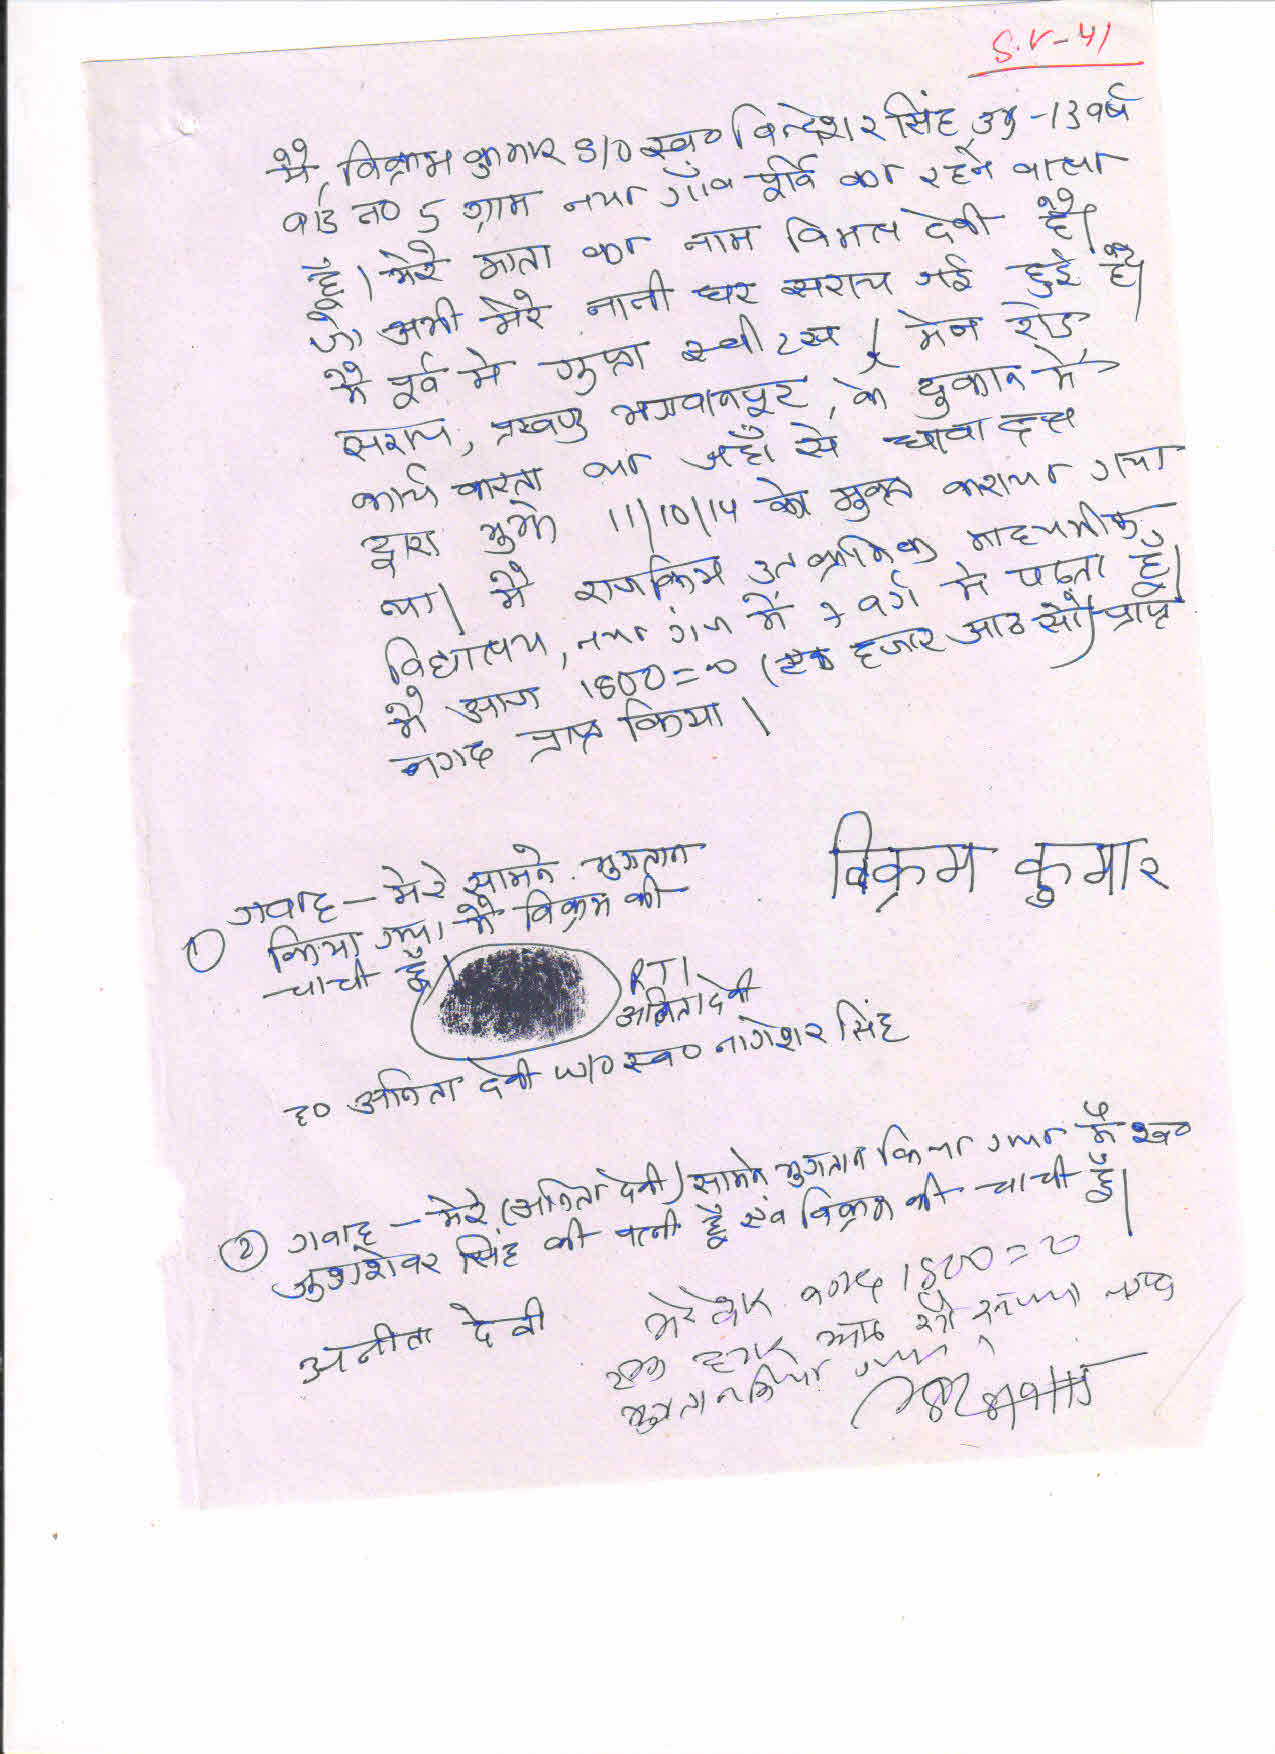 S.V-41
मै, विक्रम कुमार S/O स्व० विन्देशर सिंह उम्र -13 वर्ष
वार्ड न० 5 ग्राम नया गाँव पूर्वि का रहने वाला
हूँ। मेरे माता का नाम विमल देवी है।
जो अभी मेरे नानी घर सराय गई हुई है।
मै पूर्व मे गुप्ता स्वीट्स, मेन रोड
सराय, प्रखण्ड भगवानपुर, के दुकान मे
कार्य करता था जहाँ से धावा दल
द्वारा मुझे 11/10/14 को मुक्त कराया गया
था। मै राजकिय उत्क्रमिक माध्यमीक
विद्यालय, नया गंज में 7 वर्ग मे पढता हूँ।
मै आज 1800=00 (एक हजार आठ सौ) प्राप्त
नगद प्राप्त किया।
विक्रम कुमार
① गवाह - मेरे सामने भुगतान
किया गया। मै विक्रम की
चाची हूँ।
RTI
अनिता देवी
ह० अनिता देवी W/O स्व० नागेशर सिंह
② गवाह - मेरे (अनिता देवी) सामने भुगतान किया गया मै स्व०
सिंह की पत्नी हूँ एंव विक्रम की चाची हूँ।
अनीता देवी
मेरे नगद 1800=0
एक हजार आठ सौ रुपया
भुगतान किया गया।